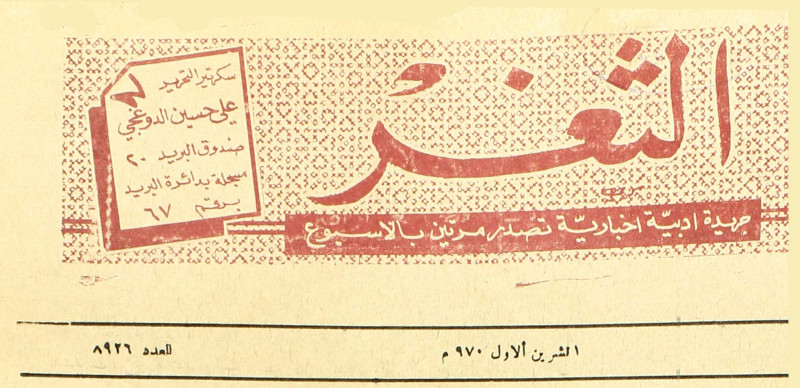 الثغر
جريدة ادبيّة اخباريّة تصدر مرتين بالاسبوع
سكرتير التحرير
علي حسين الدوغجي
صندوق البريد ٢٠
مسجلة بدائرة البريد
برقم ٦٧
١ تشرين ألاول ٩٧٠ م
العدد ٨٩٢٦